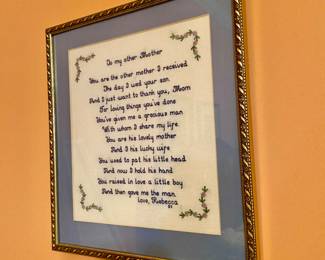 To my other Mother
You are the other mother I received
The day I wed your son.
And I just want to thank you, Mom
For loving things you've done
You've given me a gracious man
With whom I share my life.
You are his lovely mother
And I his lucky wife
You used to pat his little head
And now I hold his hand
You raised in love a little boy
And then gave me the man.
Love, Rebecca